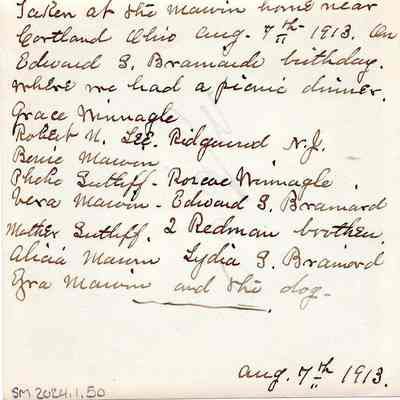 Taken at the Marvin home near
Cortland Ohio Aug. 7th 1913. On
Edward S. Brainards birthday.
where we had a picnic dinner.
Grace Winnagle
Robert N. Lee. Ridgewood N.J.
Benie Marvin
Phebe Sutliff - Roscoe Winnagle.
Vera Marvin - Edward S. Brainard
Mother Sutliff. 2 Redman brothers.
Alicia Marvin Lydia S. Brainerd
Ezra Marvin and the dog-
Aug. 7th 1913.
SM 2024.1.50